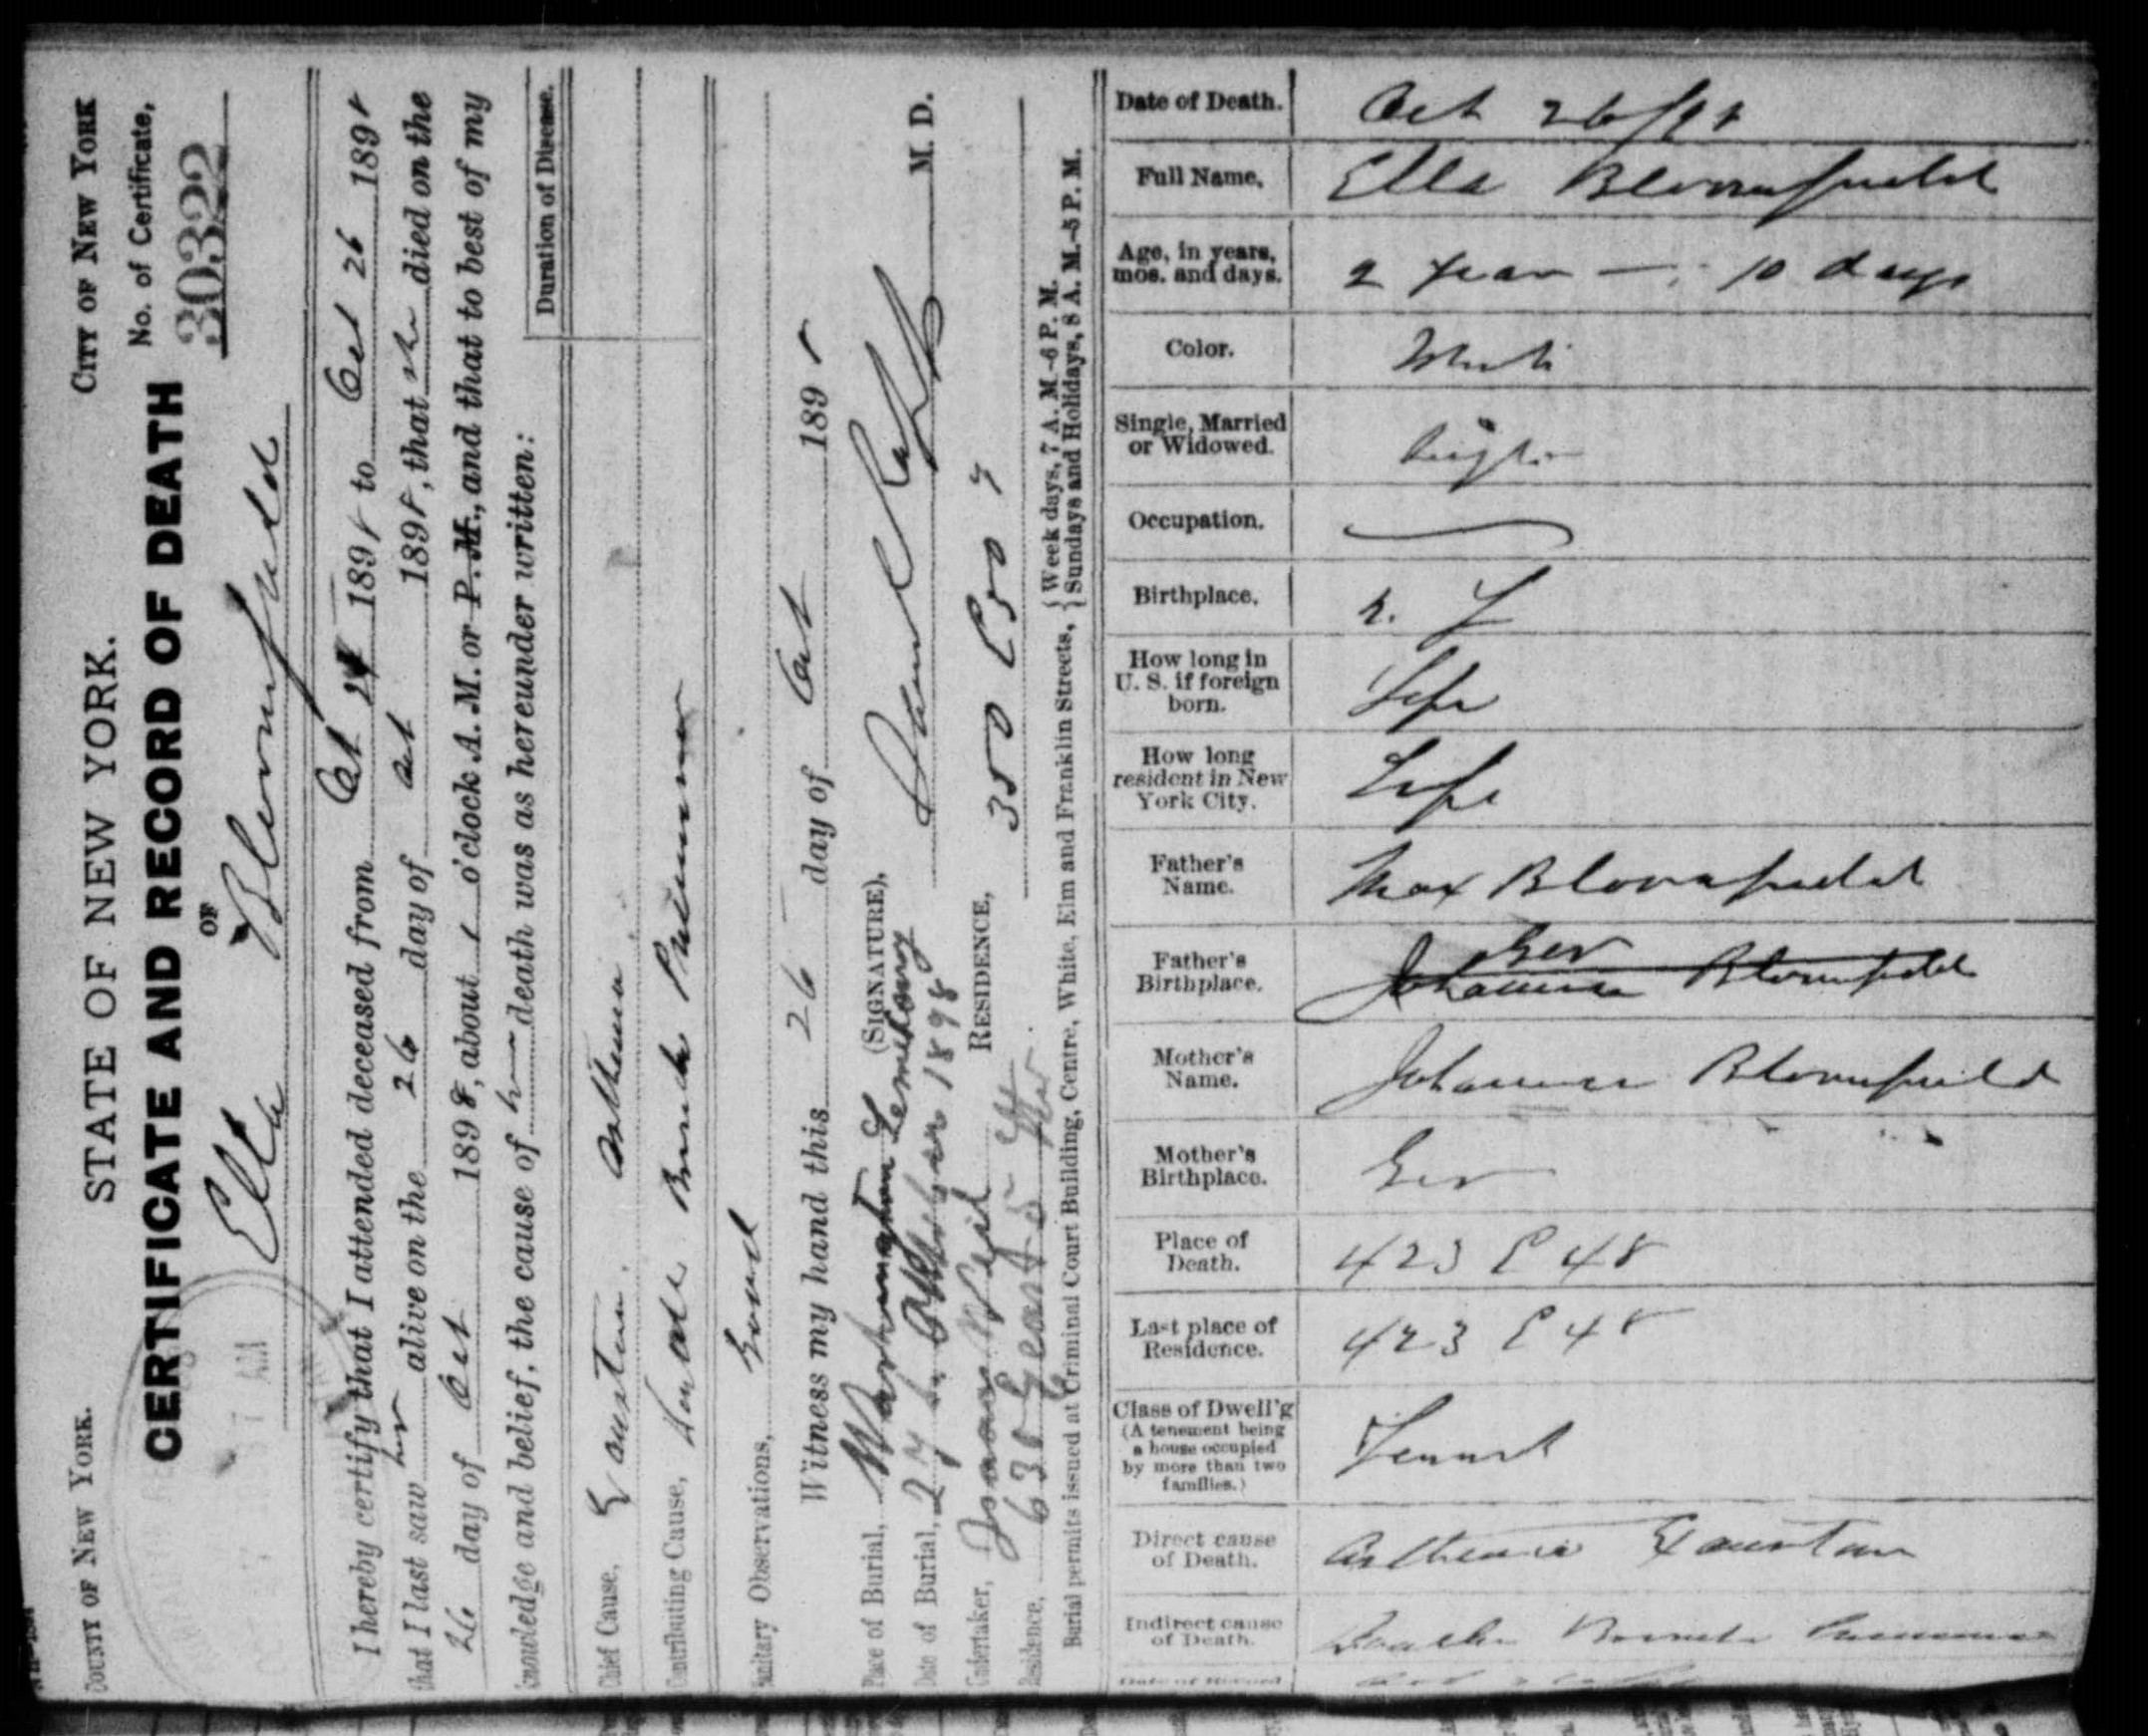 STATE OF NEW YORK.
COUNTY OF NEW YORK. CITY OF NEW YORK
CERTIFICATE AND RECORD OF DEATH
No. of Certificate,
30322
OF
Ella Bloomfield
I hereby certify that I attended deceased from Oct 24 1898 to Oct 26 1898
that I last saw her alive on the 26 day of Oct 1898, that she died on the
26 day of Oct 1898, about 1 o'clock A. M. or P. M., and that to best of my
knowledge and belief, the cause of death was as hereunder written:
Duration of Disease.
Chief Cause, Exaustion. Asthenia.
Contributing Cause, Double Broncho Pneumonia
Sanitary Observations, Good
Witness my hand this 26 day of Oct 1898
Place of Burial, Washington Cemetery
(SIGNATURE), M. D.
Date of Burial, 27 October 1898
RESIDENCE, 350 E 50
Undertaker, Isaac
Residence, 63 East 5 Str.
Burial permits issued at Criminal Court Building, Centre, White, Elm and Franklin Streets, { Week days, 7 A. M.-6 P. M.
{ Sundays and Holidays, 8 A. M.-5 P. M.
Date of Death. Oct 26/98
Full Name, Ella Bloomfield
Age, in years, mos. and days. 2 years — 10 days
Color. White
Single, Married or Widowed. Single
Occupation.
Birthplace. N. Y
How long in U. S. if foreign born. Life
How long resident in New York City. Life
Father's Name. Max Bloomfield
Father's Birthplace. Ger
Johanna Bloomfield
Mother's Name. Johanna Bloomfield
Mother's Birthplace. Ger
Place of Death. 423 E 48
Last place of Residence. 423 E 48
Class of Dwell'g
(A tenement being a house occupied by more than two families.) Tenmt
Direct cause of Death. Asthenia Exaustion
Indirect cause of Death. Double Broncho Pneumonia
Date of Record